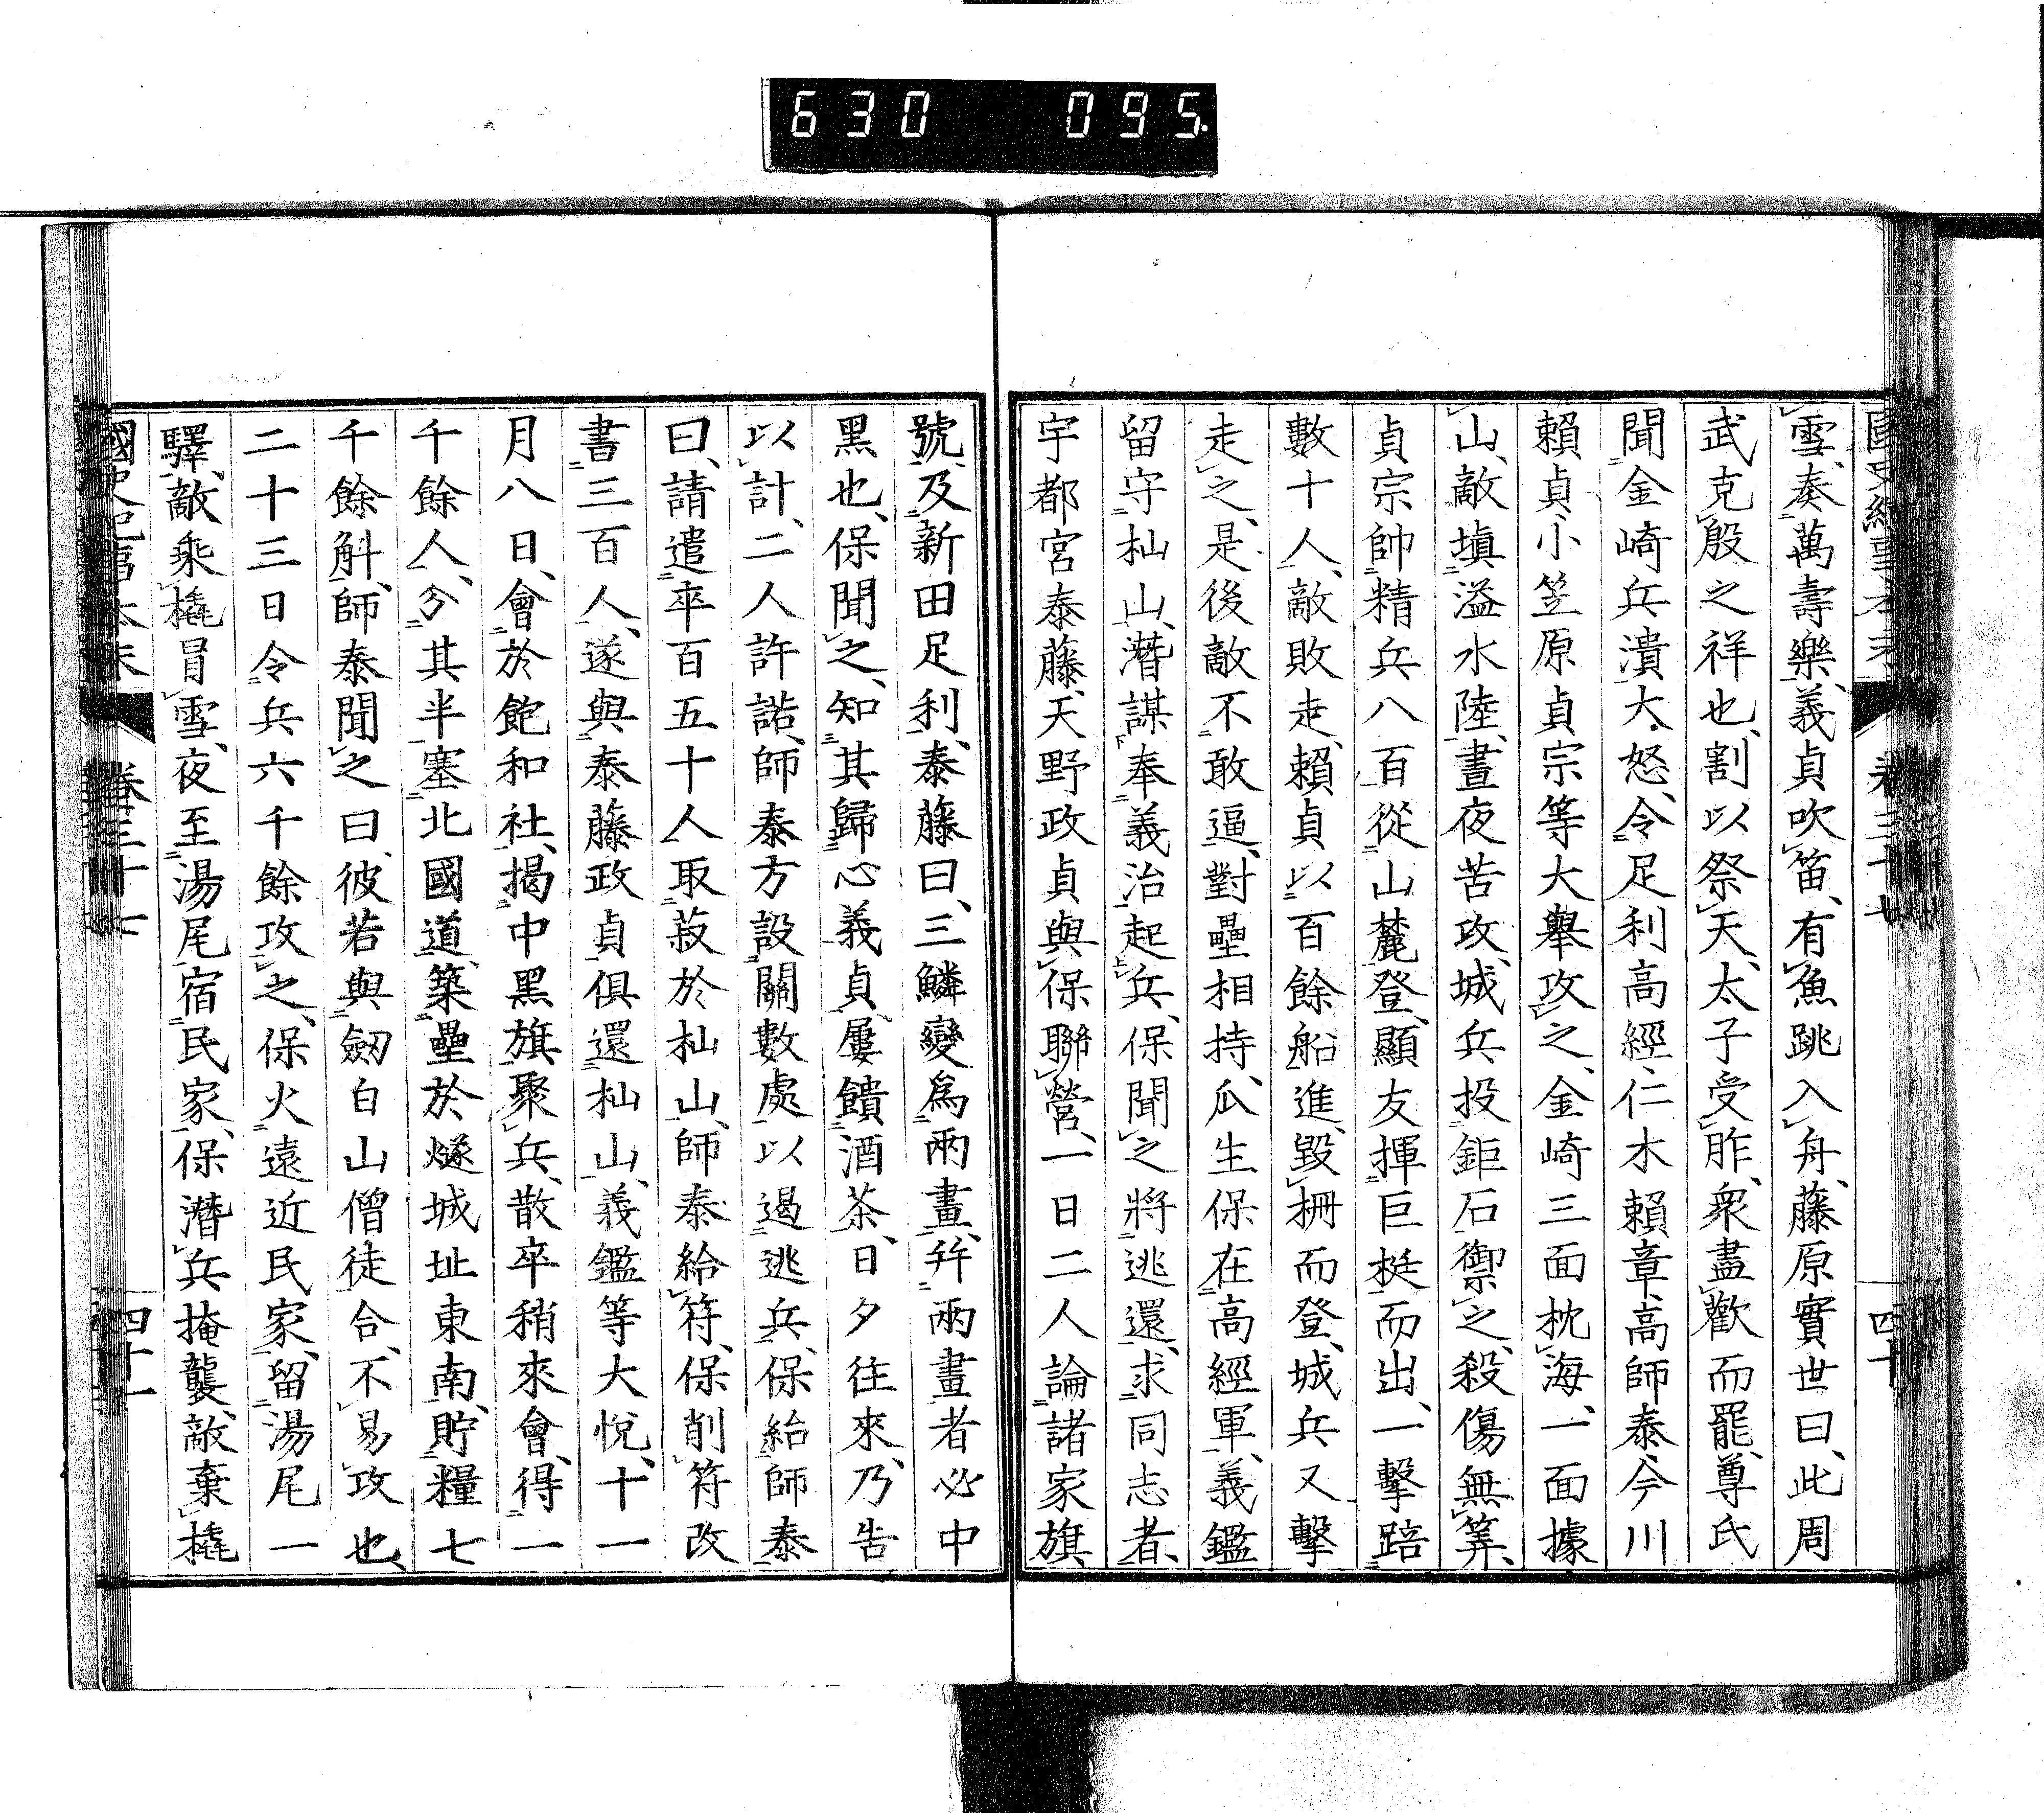 630 095.
雪、奏萬壽樂、義貞吹笛、有魚跳入舟、藤原實世曰、此周
武克殷之祥也、割以祭天、太子受胙、衆盡歡而罷、尊氏
聞金崎兵潰大怒、令足利高經、仁木賴章、高師泰、今川
賴貞、小笠原貞宗等大舉攻之、金崎三面枕海、一面據
山、敵塡溢水陸、晝夜苦攻、城兵投鉅石禦之、殺傷無筭、
貞宗帥精兵八百從山麓登、顯友揮巨梃而出、一擊踣
數十人、敵敗走、賴貞以百餘船進、毀柵而登、城兵又擊
走之、是後敵不敢逼、對壘相持、瓜生保在高經軍、義鑑
留守杣山、潛謀奉義治起兵、保聞之將逃還、求同志者、
宇都宮泰藤、天野政貞與保聯營、一日二人論諸家旗、
號及新田足利、泰藤曰、三鱗變爲兩畫、幷兩畫者必中
黑也、保聞之、知其歸心義貞、屢饋酒茶、日夕往來、乃告
以計、二人許諾、師泰方設關數處以遏逃兵、保紿師泰
曰、請遣卒百五十人取菽於杣山、師泰給符、保削符改
書三百人、遂與泰藤政貞俱還杣山、義鑑等大悅、十一
月八日、會於飽和社、揭中黑旗、聚兵、散卒稍來會、得一
千餘人、分其半塞北國道、築壘於燧城址東南、貯糧七
千餘斛、師泰聞之曰、彼若與劒白山僧徒合、不易攻也、
二十三日令兵六千餘攻之、保火遠近民家、留湯尾一
驛、敵乘橇冒雪、夜至湯尾、宿民家、保潛兵掩襲、敵棄橇
國史紀事本末 卷三十七 四十一